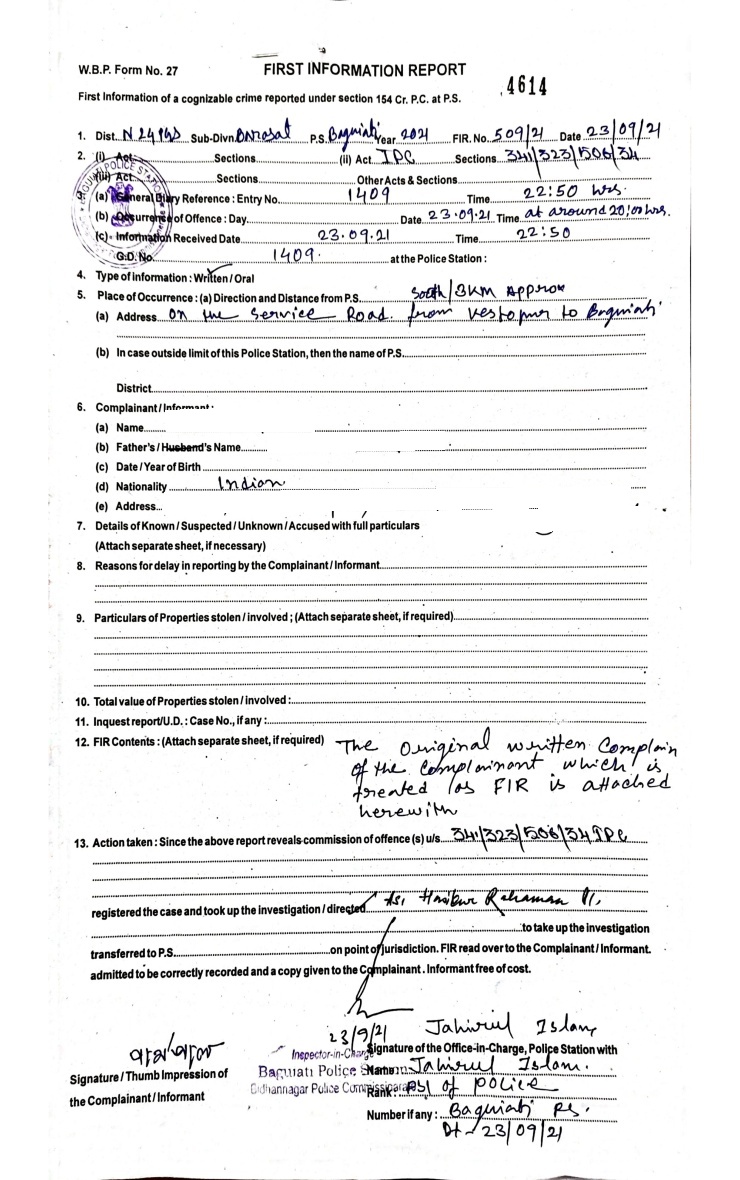 W.B.P. Form No. 27
FIRST INFORMATION REPORT
4614
First Information of a cognizable crime reported under section 154 Cr. P.C. at P.S.
1. Dist. N 24 PGS Sub-Divn Barasat P.S. Baguiati Year 2021 FIR. No. 509/21 Date 23/09/21
2. (i) Act Sections (ii) Act IPC Sections 341/323/506/34
(iii) Act Sections Other Acts & Sections
(a) General Diary Reference : Entry No. 1409 Time 22:50 hrs.
(b) Occurrence of Offence : Day Date 23.09.21 Time at around 20:00 hrs.
(c) Information Received Date 23.09.21 Time 22:50
G.D. No. 1409. at the Police Station :
4. Type of Information : Written / Oral
5. Place of Occurrence : (a) Direction and Distance from P.S. South/3KM Approx
(a) Address on the Service Road from Kestopur to Baguiati
(b) In case outside limit of this Police Station, then the name of P.S.
District
6. Complainant / Informant
(a) Name
(b) Father's / Husband's Name
(c) Date / Year of Birth
(d) Nationality Indian
(e) Address
7. Details of Known / Suspected / Unknown / Accused with full particulars
(Attach separate sheet, if necessary)
8. Reasons for delay in reporting by the Complainant / Informant
9. Particulars of Properties stolen / involved ; (Attach separate sheet, if required)
10. Total value of Properties stolen / involved :
11. Inquest report/U.D. : Case No., if any :
12. FIR Contents : (Attach separate sheet, if required) The Original written Complain
of the Complainant which is
treated as FIR is attached
herewith
13. Action taken : Since the above report reveals commission of offence (s) u/s 341/323/506/34 IPC
registered the case and took up the investigation / directed ASI Rahaman
to take up the investigation
transferred to P.S. on point of jurisdiction. FIR read over to the Complainant / Informant.
admitted to be correctly recorded and a copy given to the Complainant. Informant free of cost.
23/9/21
Jahirul Islam
Inspector-in-Charge
Signature of the Office-in-Charge, Police Station with
Baguiati Police Station
Name Jahirul Islam.
Signature / Thumb Impression of
Bidhannagar Police Commissionarate
Rank : SI of police
the Complainant / Informant
Number if any : Baguiati PS.
Dt - 23/09/21